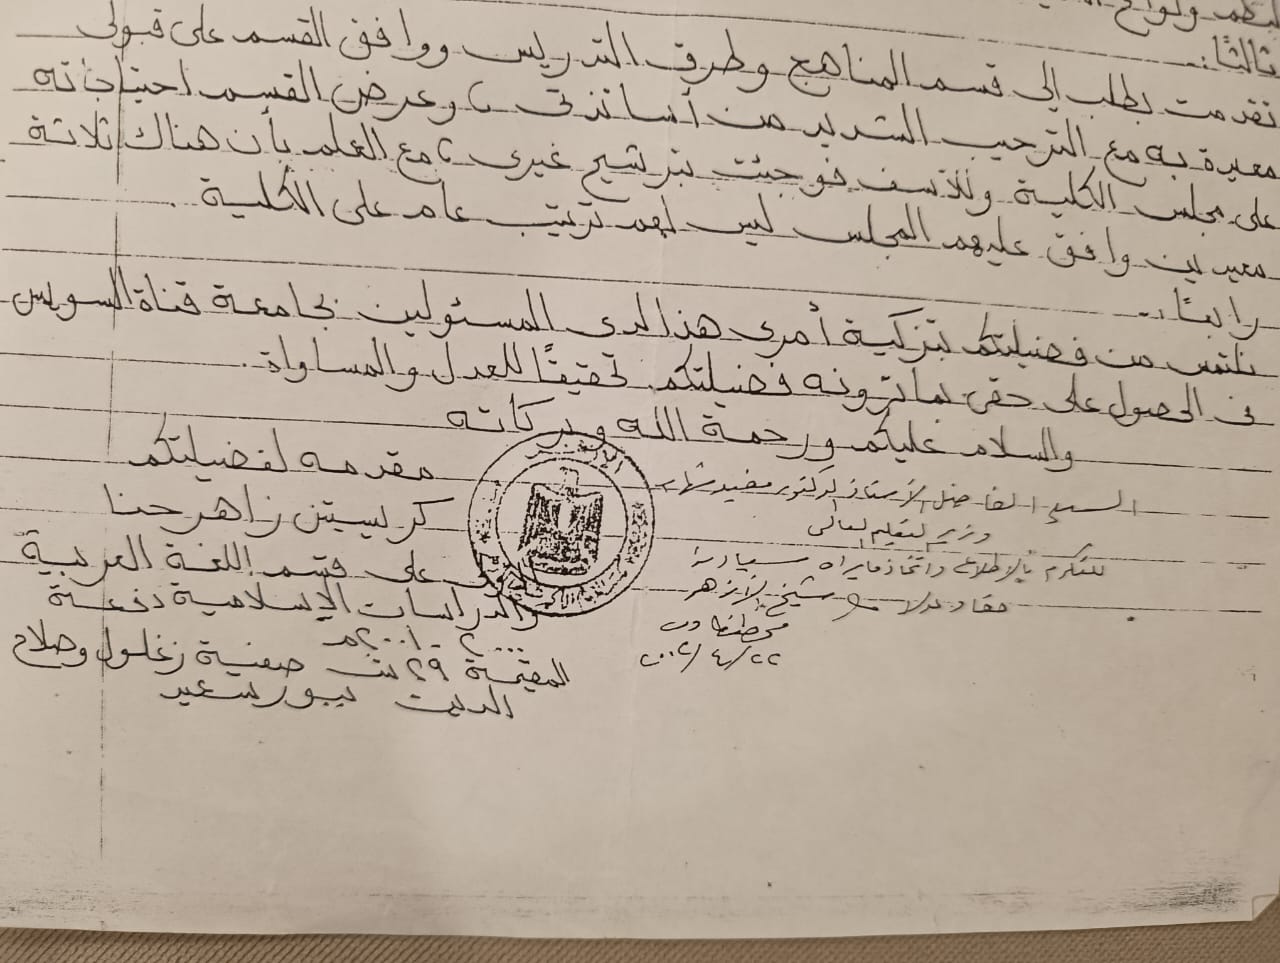 ثالثًا:
تقدمت بطلب إلى قسم المناهج وطرق التدريس ووافق القسم على قبولى
معيدة به مع الترحيب الشديد من أساتذتى ، وعرض القسم احتياجاته
على مجلس الكلية وللأسف فوجئت بترشيح غيرى ، مع العلم بأن هناك ثلاثة
معيدين وافق عليهم المجلس ليس لهم ترتيب عام على الكلية .
رابعًا:
نلتمس من فضيلتكم بتزكية أمرى هذا لدى المسئولين بجامعة قناة السويس
فى الحصول على حقى بما ترونه فضيلتكم تحقيقًا للعدل والمساواة .
والسلام عليكم ورحمة الله وبركاته
مقدمه لفضيلتكم
كريستين زاهر حنا
على قسم اللغة العربية
والدراسات الإسلامية دفعة
٢٠٠٠ - ٢٠٠١م
المقيمة ٢٩ ش صفية زغلول وصلاح
الدين ببورسعيد
السيد الفاضل الأستاذ الدكتور مفيد شهاب
وزير التعليم العالى
للتكرم بالاطلاع واتخاذ ما يراه سيادته
شيخ الأزهر
محمد طنطاوى
٢٢/٤/٢٠٠٢